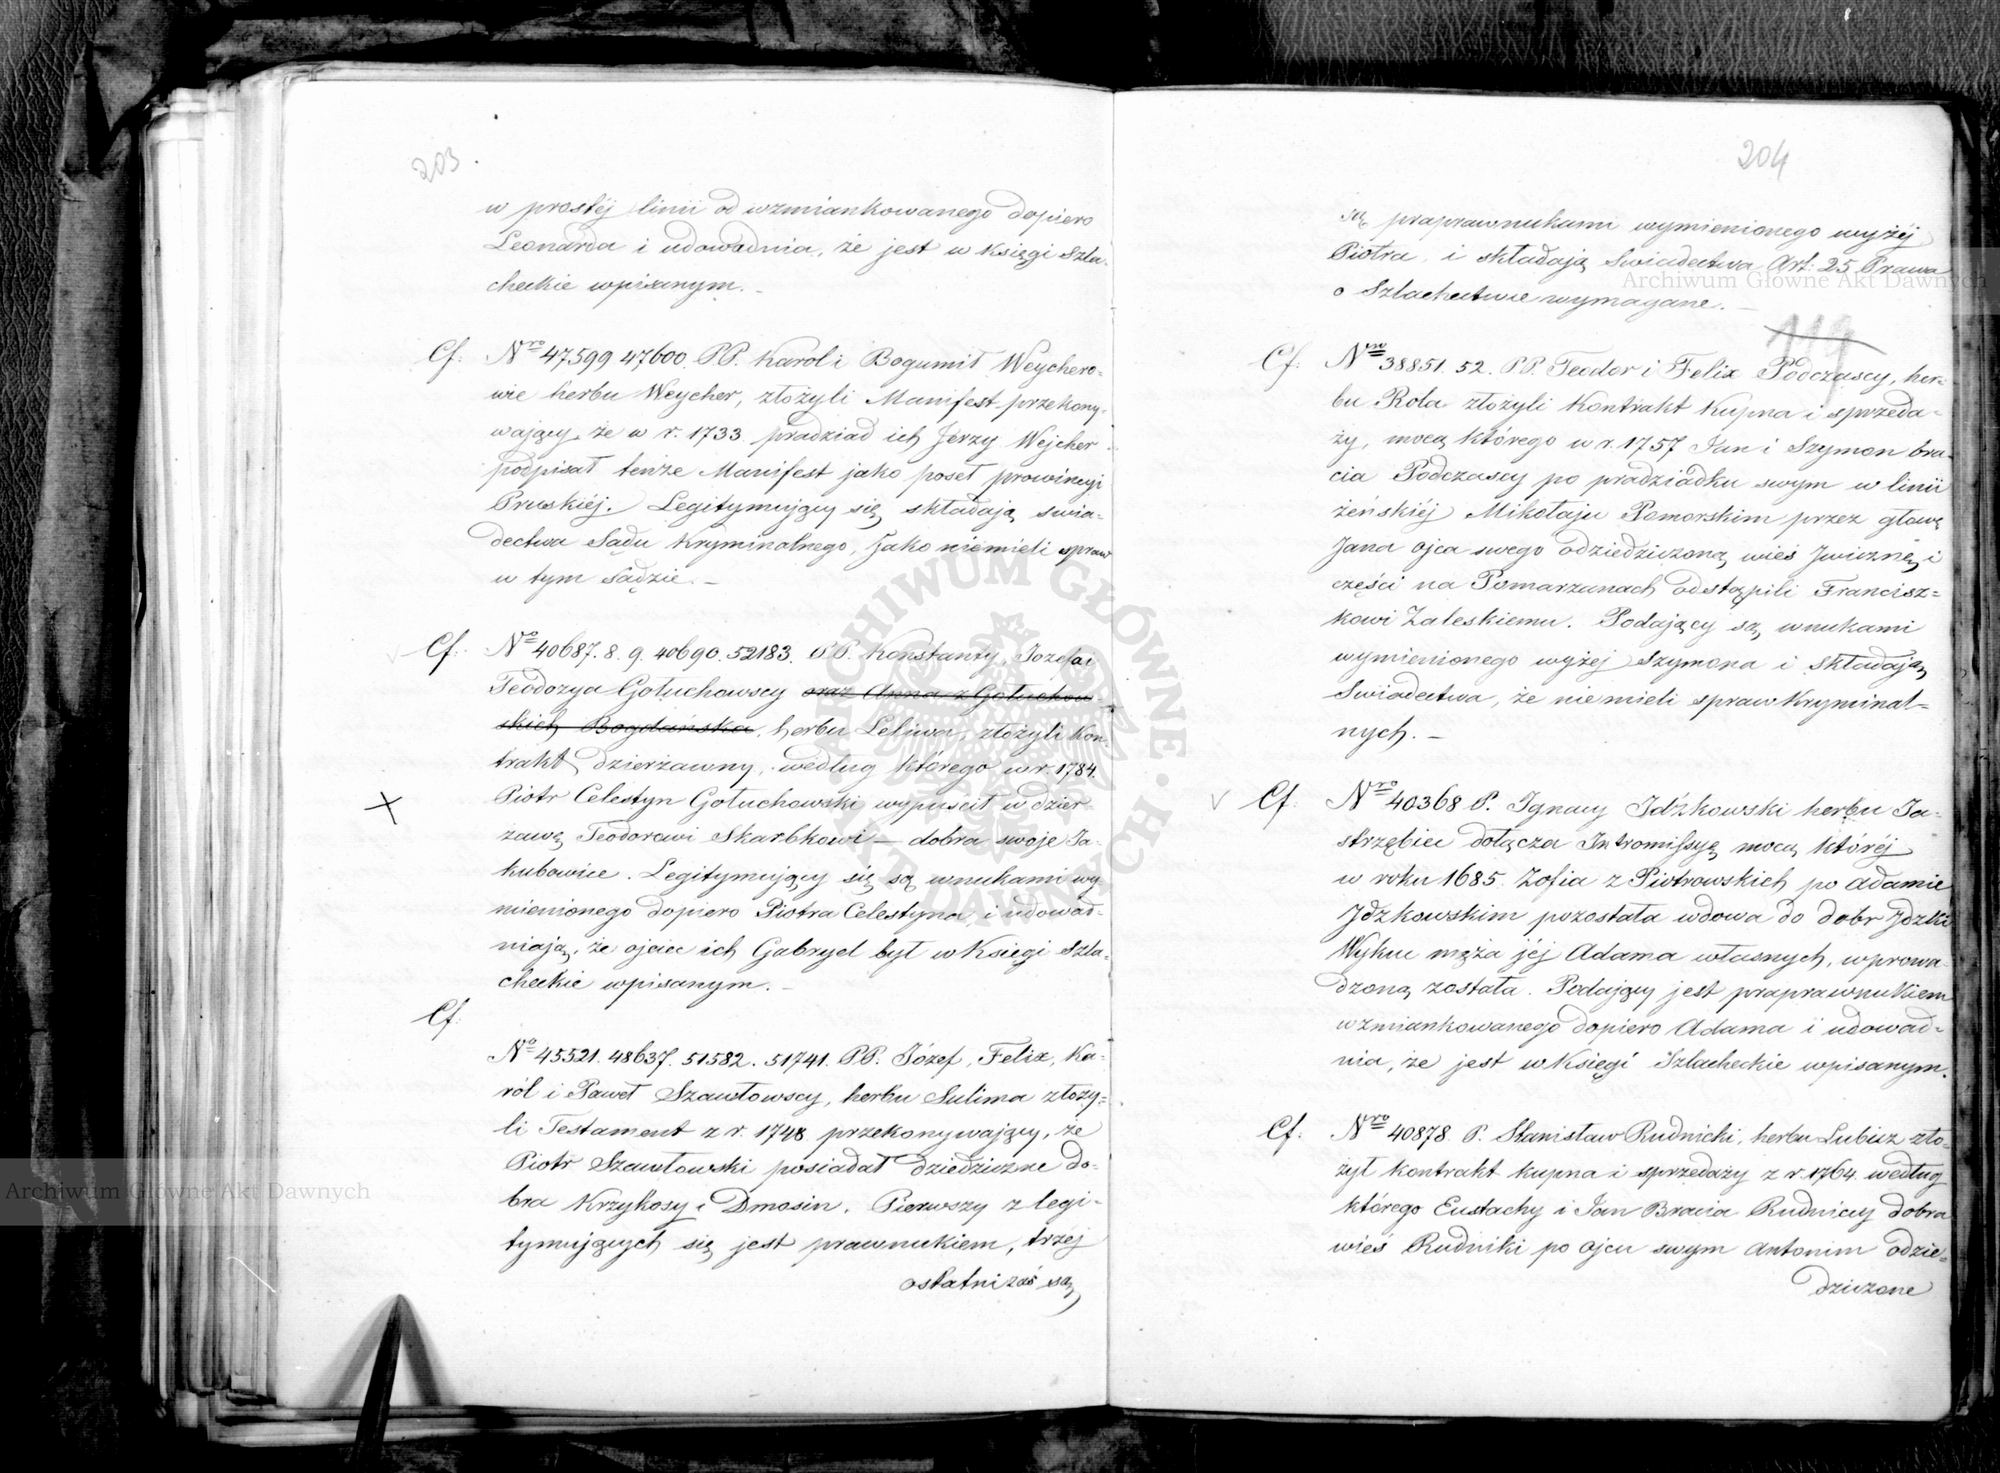 203
w prostéj linii od wzmiankowanego dopiero
Leonarda i udowadnia, że jest w Księgi Szla-
checkie wpisanym. –
Cf. Nro 47599 47600. PP. Karol i Bogumił Weychero-
wie herbu Weycher, złożyli Manifest przekony-
wający, że w r. 1733. pradziad ich Jérzy Wejcher
podpisał tenże Manifest jako poseł prowincyi
Pruskiéj. Legitymujący się, składają świa-
dectwa Sądu Kryminalnego, jako niemieli spraw
w tym Sądzie. –
Cf. No 40687. 8. 9. 40690. 52183. PP. Konstanty, Józef i
Teodozya Gołuchowscy oraz Anna z Gołuchow-
skich Bogdańska, herbu Leliwa, złożyli Kon-
trakt dzierżawny, według którego w r. 1784.
Piotr Celestyn Gołuchowski wypuścił w dzier-
żawę Teodorowi Skarbkowi – dobra swoje Ja-
kubowice. Legitymujący się są wnukami wy-
mienionego dopiero Piotra Celestyna, i udowad-
niają, że ojciec ich Gabryel był w Księgi Szla-
checkie wpisanym. –
Cf.
No 45521. 48637. 51582. 51741. PP. Józef, Felix, Ka-
ról i Paweł Szawłowscy, herbu Sulima złoży=
li Testament z r. 1748 przekonywający, że
Piotr Szawłowski posiadał dziedziczne do-
bra Krzykosy i Dmosin. Pierwszy z legi-
tymujących się jest prawnukiem, trzéj
ostatni zaś są
204
są praprawnukami wymienionego wyżéj
Piotra, i składają Świadectwa Art: 25 Prawa
o Szlachectwie wymagane. –
119
Cf. Nro 38851. 52. PP. Teodor i Felix Podczascy, her-
bu Rola złożyli Kontrakt Kupna i sprzeda-
ży, mocą którego w r. 1757 Jan i Szymon bra-
cia Podczascy po pradziadku swym w linii
żeńskiéj Mikołaju Pomorskim przez głowę
Jana ojca swego odziedziczoną wieś Jwiczną i
części na Pomarzanach odstąpili Francisz=
kowi Zaleskiemu. Podający są wnukami
wymienionego wyżej Szymona i składają
Świadectwa, że niemieli spraw Kryminal=
nych. –
Cf. Nro 40368 P. Ignacy Idźkowski herbu Ja-
strzębiec dołącza Intromissyę mocą któréj
w roku 1685. Zofia z Piotrowskich po Adamie
Jdzkowskim pozostała wdowa do dobr Jdzki
Wykne męża jéj Adama własnych, wprowa-
dzoną została. Podający jest praprawnukiem
wzmiankowanego dopiero Adama i udowad-
nia, że jest w Księgi Szlacheckie wpisanym.
Cf. Nro 40878. P. Stanisław Rudnicki, herbu Lubicz zło-
żył kontrakt kupna i sprzedaży z r. 1764. według
którego Eustachy i Jan Bracia Rudniccy dobra
wieś Rudniki po ojcu swym Antonim odzie-
dziczone
Archiwum Główne Akt Dawnych
Archiwum Główne Akt Dawnych
ARCHIWUM GŁÓWNE AKT DAWNYCH